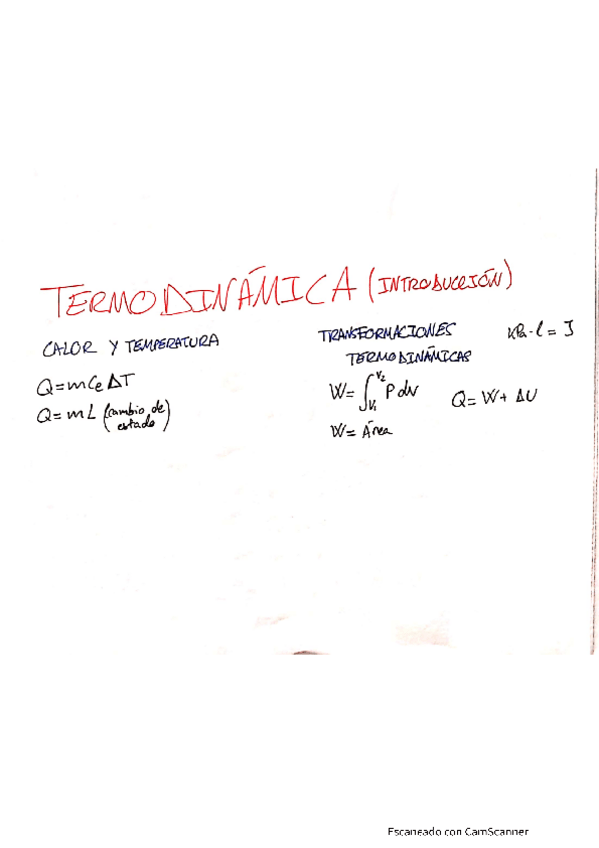 TERMODINÁMICA (INTRODUCCIÓN)
CALOR Y TEMPERATURA
Q=mCeΔT
Q=mL (cambio de estado)
TRANSFORMACIONES
TERMODINÁMICAS
kPa·l = J
W=∫V₁V₂ P dV
Q= W+ ΔU
W= Área
Escaneado con CamScanner